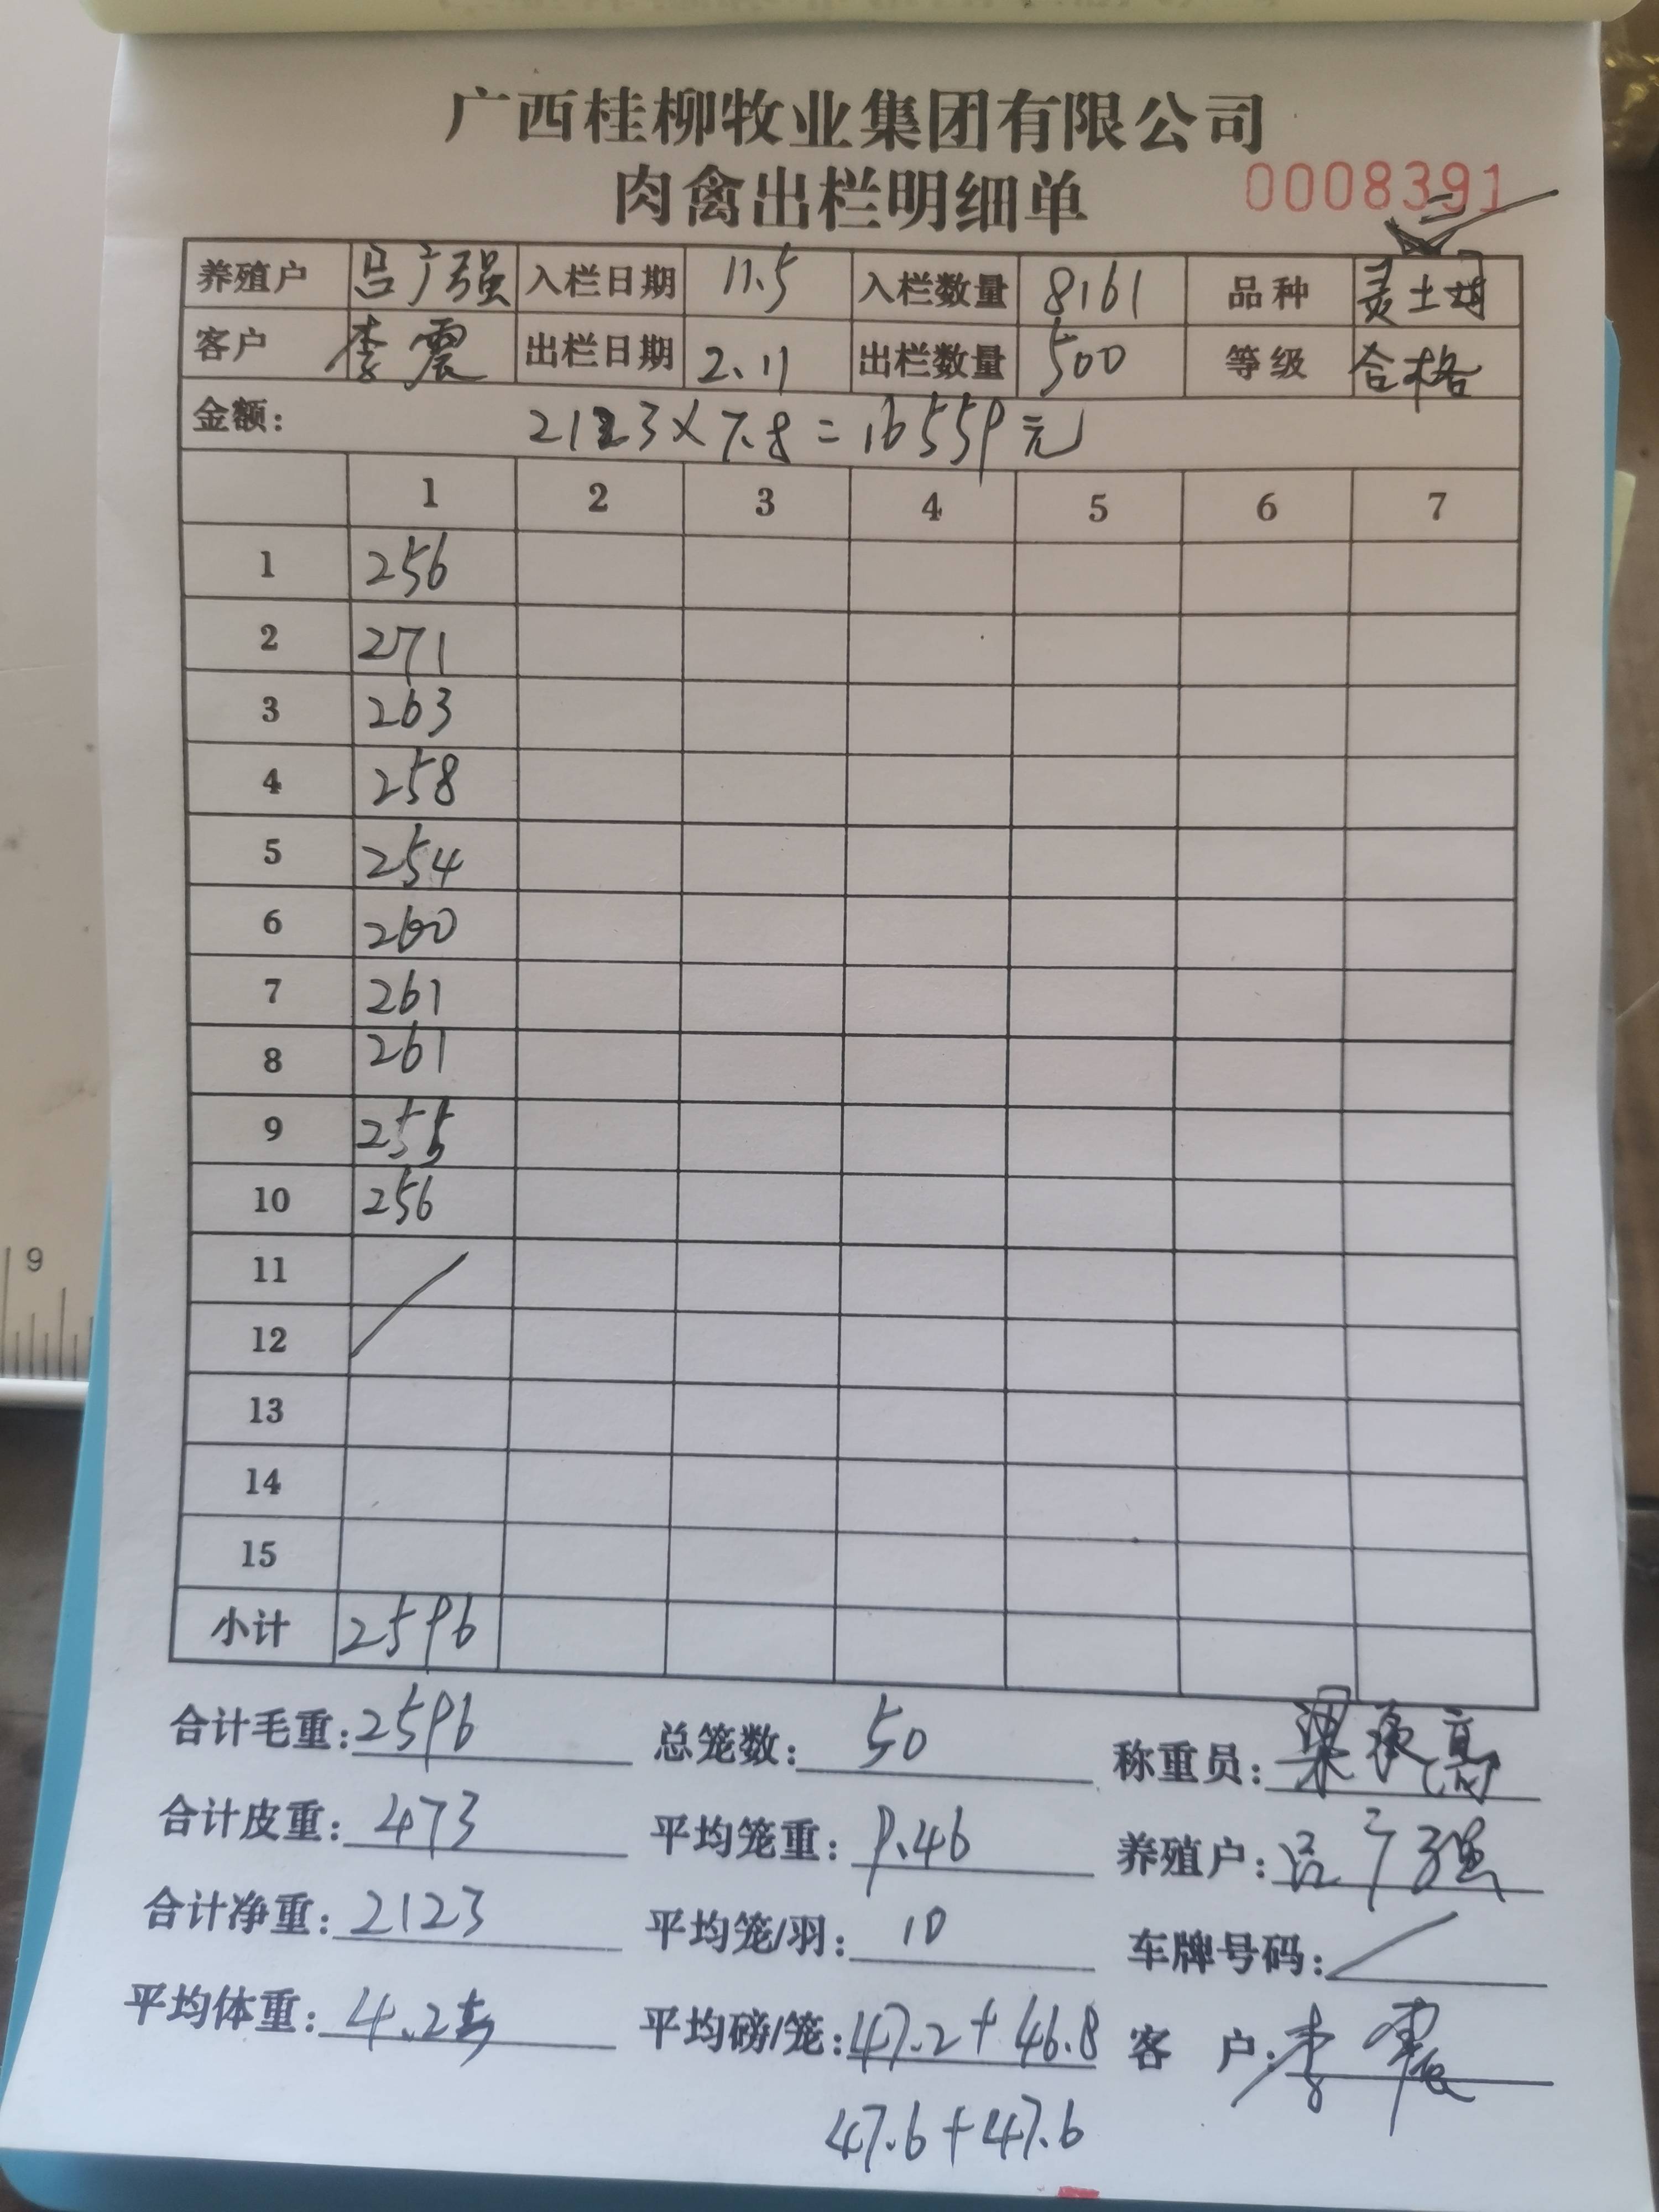 广西桂柳牧业集团有限公司
肉禽出栏明细单
0008391
养殖户 吕广强 入栏日期 11.5 入栏数量 8161 品种 灵土
客户 李震 出栏日期 2.11 出栏数量 500 等级 合格
金额: 2123×7.8=16559元
1 2 3 4 5 6 7
1 256
2 271
3 263
4 258
5 254
6 260
7 261
8 261
9 255
10 256
11
12
13
14
15
小计 2596
合计毛重: 2596 总笼数: 50 称重员: 梁承高
合计皮重: 473 平均笼重: 9.46 养殖户: 吕广强
合计净重: 2123 平均笼/羽: 10 车牌号码: /
平均体重: 4.25 平均磅/笼: 47.2+46.8 客户: 李震
47.6+47.6
9